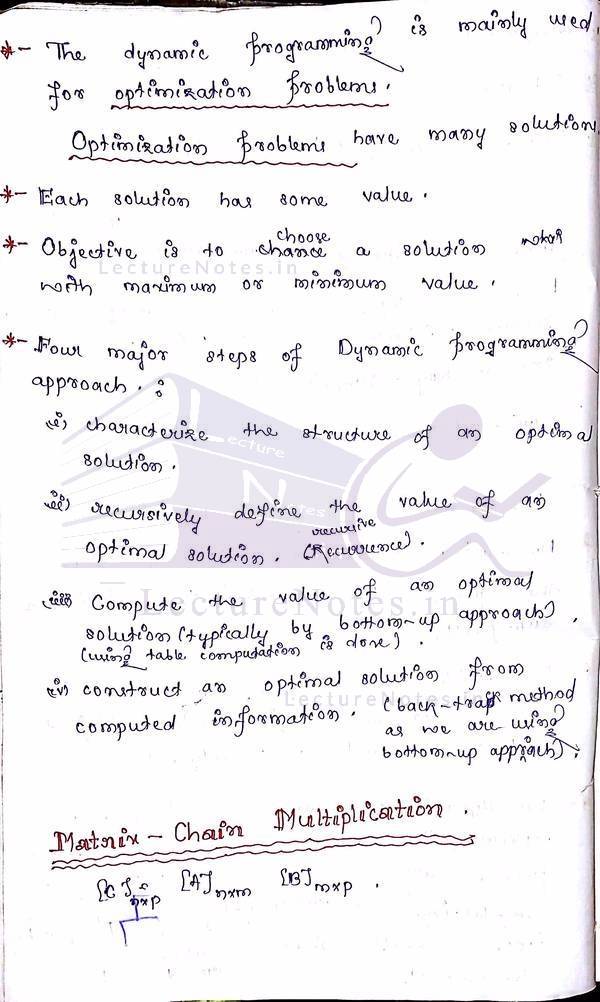 *- The dynamic programming is mainly used
for optimization problems.
Optimization problems have many solution
*- Each solution has some value.
choose
*- Objective is to chance a solution
LectureNotes.in
with maximum or minimum value.
*- Four major steps of Dynamic programming
approach. :
i) characterize the structure of an optimal
solution.
Lecture
Notes
ii) recursively define the value of an
recursive
optimal solution. (Recurrence).
iii) Compute the value of an optimal
LectureNotes.in
solution (typically by bottom-up approach).
(using table computation is done).
iv) construct an optimal solution from
LectureNotes.in
computed information. (back-track method
as we are using
bottom-up approach).
Matrix - Chain Multiplication.
[C]n×p = [A]n×m [B]m×p .